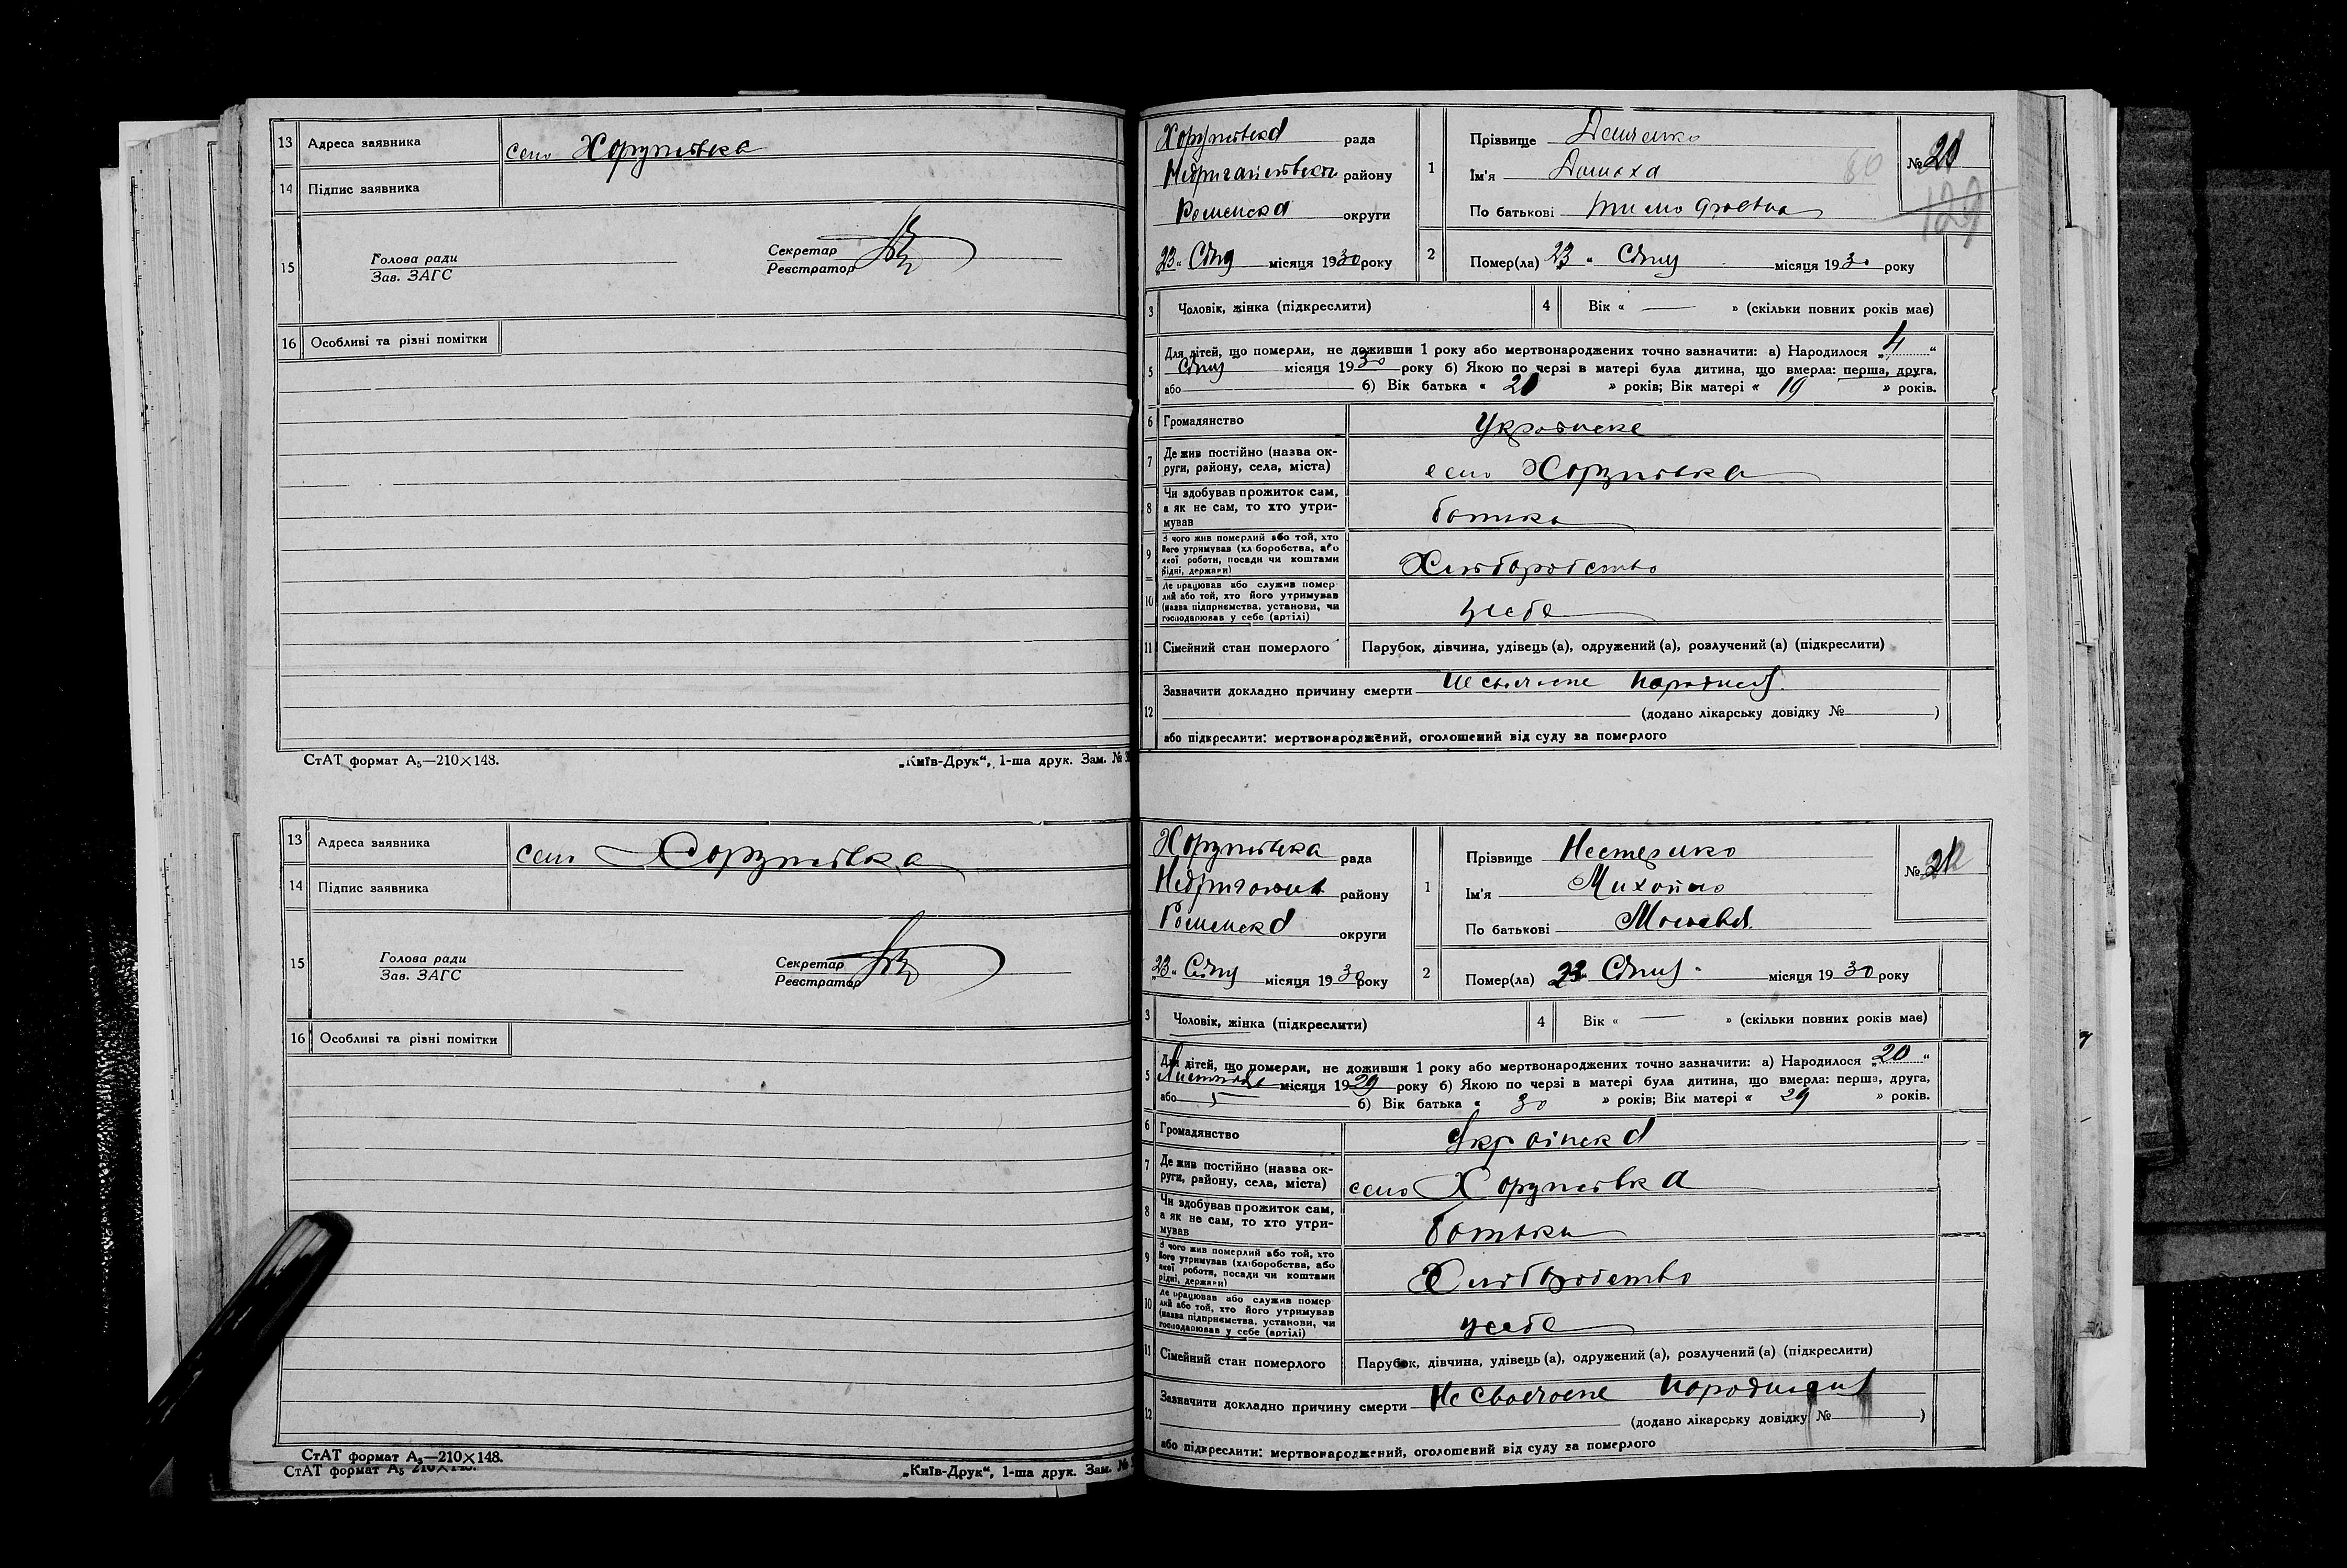 13 Адреса заявника село Хоружівка
14 Підпис заявника
15 Голова ради
Зав. ЗАГС
Секретар
Реєстратор
16 Особливі та різні помітки
СтАТ формат А₅—210×148.
„Київ-Друк“, 1-ша друк. Зам. №
13 Адреса заявника село Хоружівка
14 Підпис заявника
15 Голова ради
Зав. ЗАГС
Секретар
Реєстратор
16 Особливі та різні помітки
СтАТ формат А₅—210×148.
СтАТ формат А₅ 210×148.
„Київ-Друк“, 1-ша друк. Зам. №
Хоружівська рада
Недригайлівськ району
Роменська округи
23 Січня місяця 1930 року
1 Прізвище
Ім'я Домаха
По батькові Тимофіївна
№ 20
60
129
2 Помер(ла) 23 „ Січня місяця 1930 року
3 Чоловік, жінка (підкреслити)
4 Вік « — » (скільки повних років має)
5 Для дітей, що померли, не доживши 1 року або мертвонароджених точно зазначити: а) Народилося „ 4 “
Січня місяця 1930 року б) Якою по черзі в матері була дитина, що вмерла: перша, друга,
або б) Вік батька « 20 » років; Вік матері « 19 » років.
6 Громадянство Українске
7 Де жив постійно (назва округи, району, села, міста) село Хоружівка
8 Чи здобував прожиток сам, а як не сам, то хто утримував батька
9 З чого жив померлий або той, хто його утримував (хліборобства, або якої роботи, посади чи коштами рідні, держави) Хліборобство
10 Де працював або служив померлий або той, хто його утримував (назва підприємства, установи, чи господарював у себе (артілі) усебе
11 Сімейний стан померлого Парубок, дівчина, удівець (а), одружений (а), розлучений (а) (підкреслити)
12 Зазначити докладно причину смерти Не своєчасне народження
(додано лікарську довідку № )
або підкреслити: мертвонароджений, оголошений від суду за померлого
Хоружівка рада
Недригайлів району
Роменська округи
„23“ Січня місяця 1930 року
1 Прізвище Нестеренко
Ім'я Михайло
По батькові
№ 21
2 Помер(ла) Січня місяця 1930 року
3 Чоловік, жінка (підкреслити)
4 Вік « — » (скільки повних років має)
5 Для дітей, що померли, не доживши 1 року або мертвонароджених точно зазначити: а) Народилося „ 20 “
Листопада місяця 1929 року б) Якою по черзі в матері була дитина, що вмерла: перша, друга,
або 5 б) Вік батька « 30 » років; Вік матері « 29 » років.
6 Громадянство Українска
7 Де жив постійно (назва округи, району, села, міста) село Хоружівка
8 Чи здобував прожиток сам, а як не сам, то хто утримував батька
9 З чого жив померлий або той, хто його утримував (хліборобства, або якої роботи, посади чи коштами рідні, держави) Хліборобство
10 Де працював або служив померлий або той, хто його утримував (назва підприємства, установи, чи господарював у себе (артілі) усебе
11 Сімейний стан померлого Парубок, дівчина, удівець (а), одружений (а), розлучений (а) (підкреслити)
12 Зазначити докладно причину смерти Не своєчасне народження
(додано лікарську довідку № )
або підкреслити: мертвонароджений, оголошений від суду за померлого